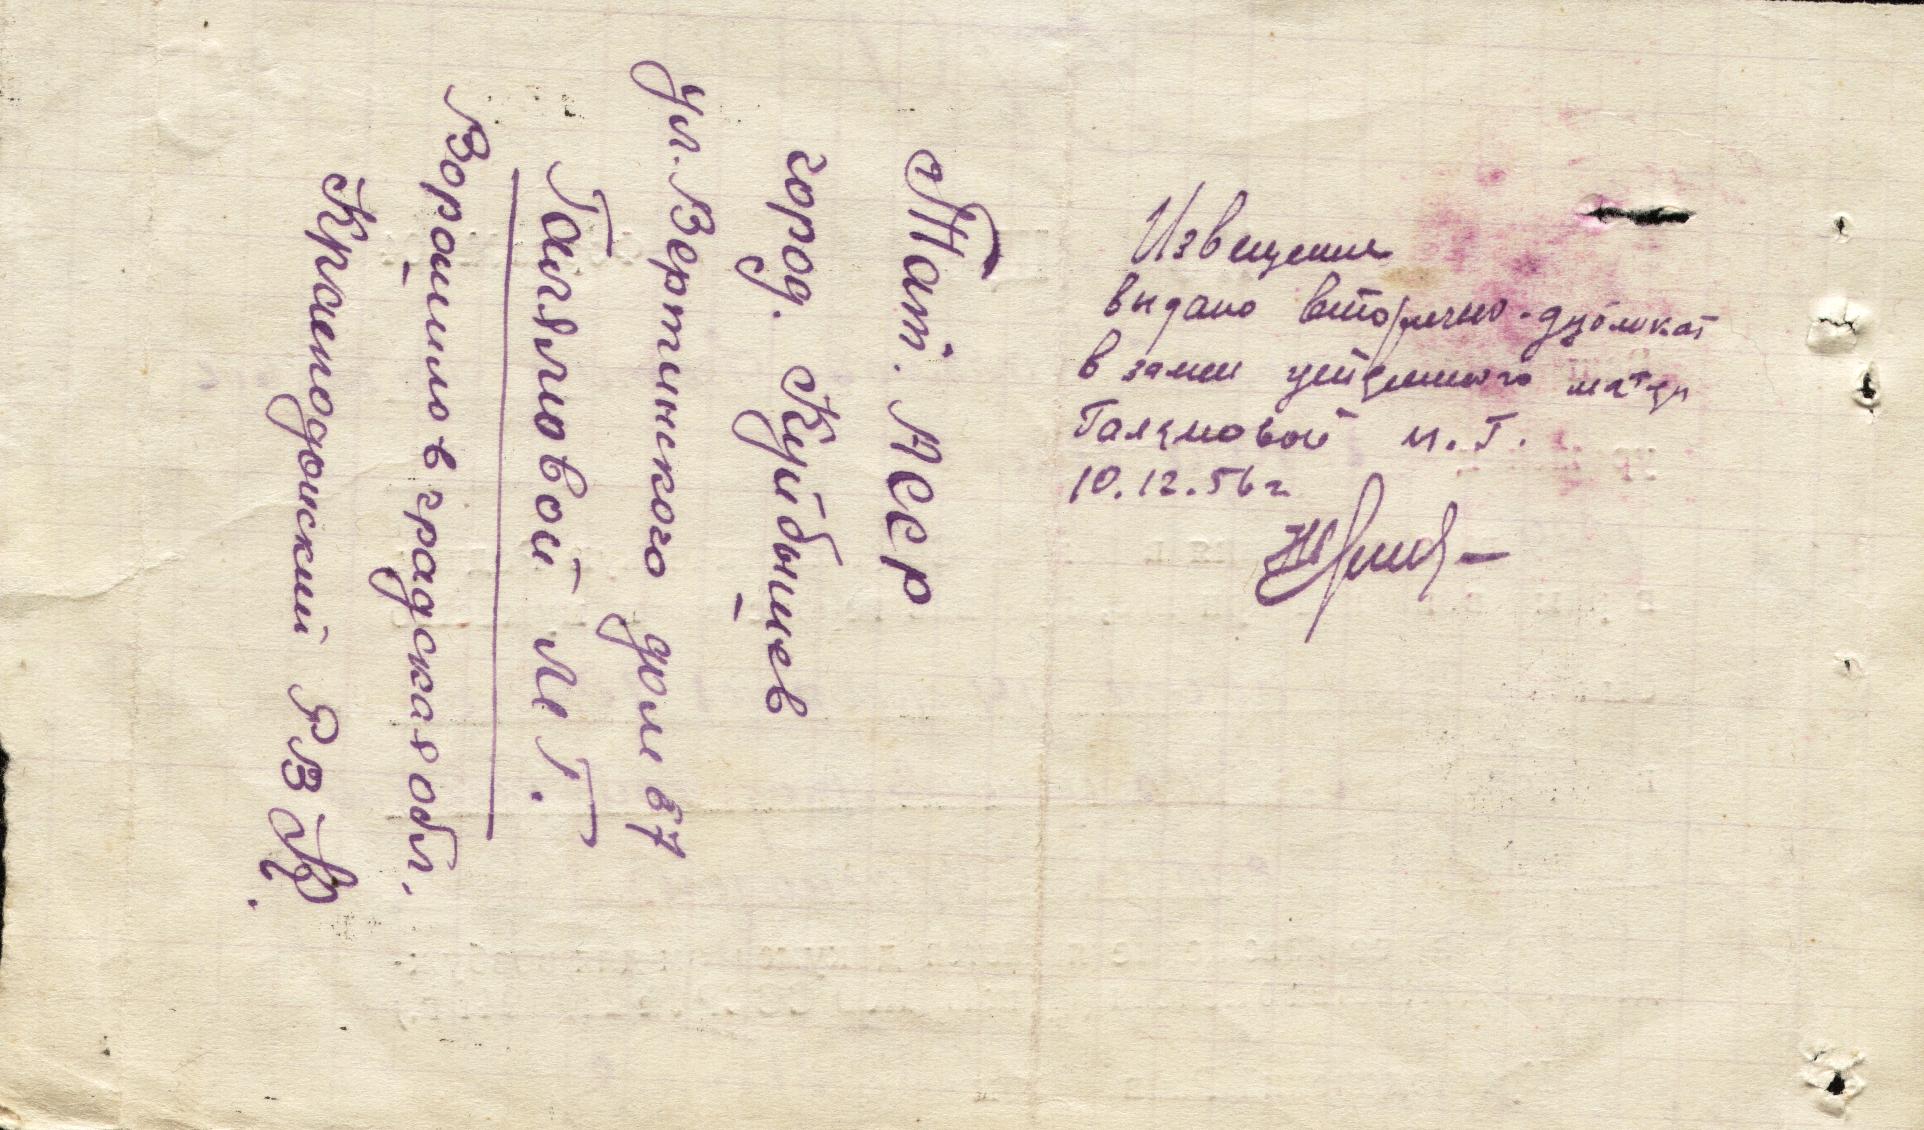 Тат. АССР
город. Куйбышев
ул. Вертинского дом 67
Галяловой М Г.
Ворошиловградская обл.
Краснодонский РВК.
Извещение
выдано вторично-дубликат
в замен утерянного матери
Галяловой М. Г.
10.12.56 г